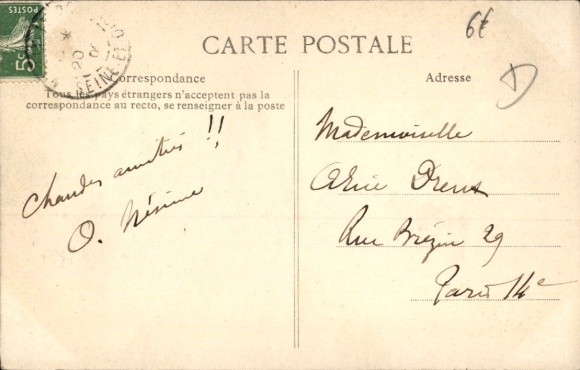 POSTES
5c
6t
CARTE POSTALE
Correspondance
Tous les pays étrangers n'acceptent pas la
correspondance au recto, se renseigner à la poste
Chaudes amitiés !!
O. Nésime
Adresse
D
Mademoiselle
Alice Dreux
Rue Brézin 29
Paris 14e